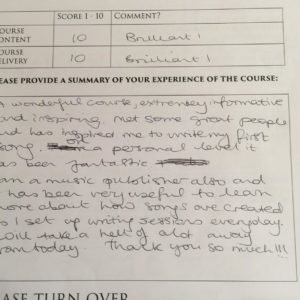 SCORE 1 - 10 COMMENT?
OURSE
ONTENT 10 Brilliant!
OURSE
ELIVERY 10 Brilliant!
EASE PROVIDE A SUMMARY OF YOUR EXPERIENCE OF THE COURSE:
A wonderful course, extremely informative
and inspiring. Met some great people
and has inspired me to write my first
song. On a personal level it
as been fantastic
am a music publisher also and
t has been very useful to learn
more about how songs are created
s I set up writing sessions everyday.
will take a hell of alot away
rom today. Thank you so much!!!
ASE TURN OVER